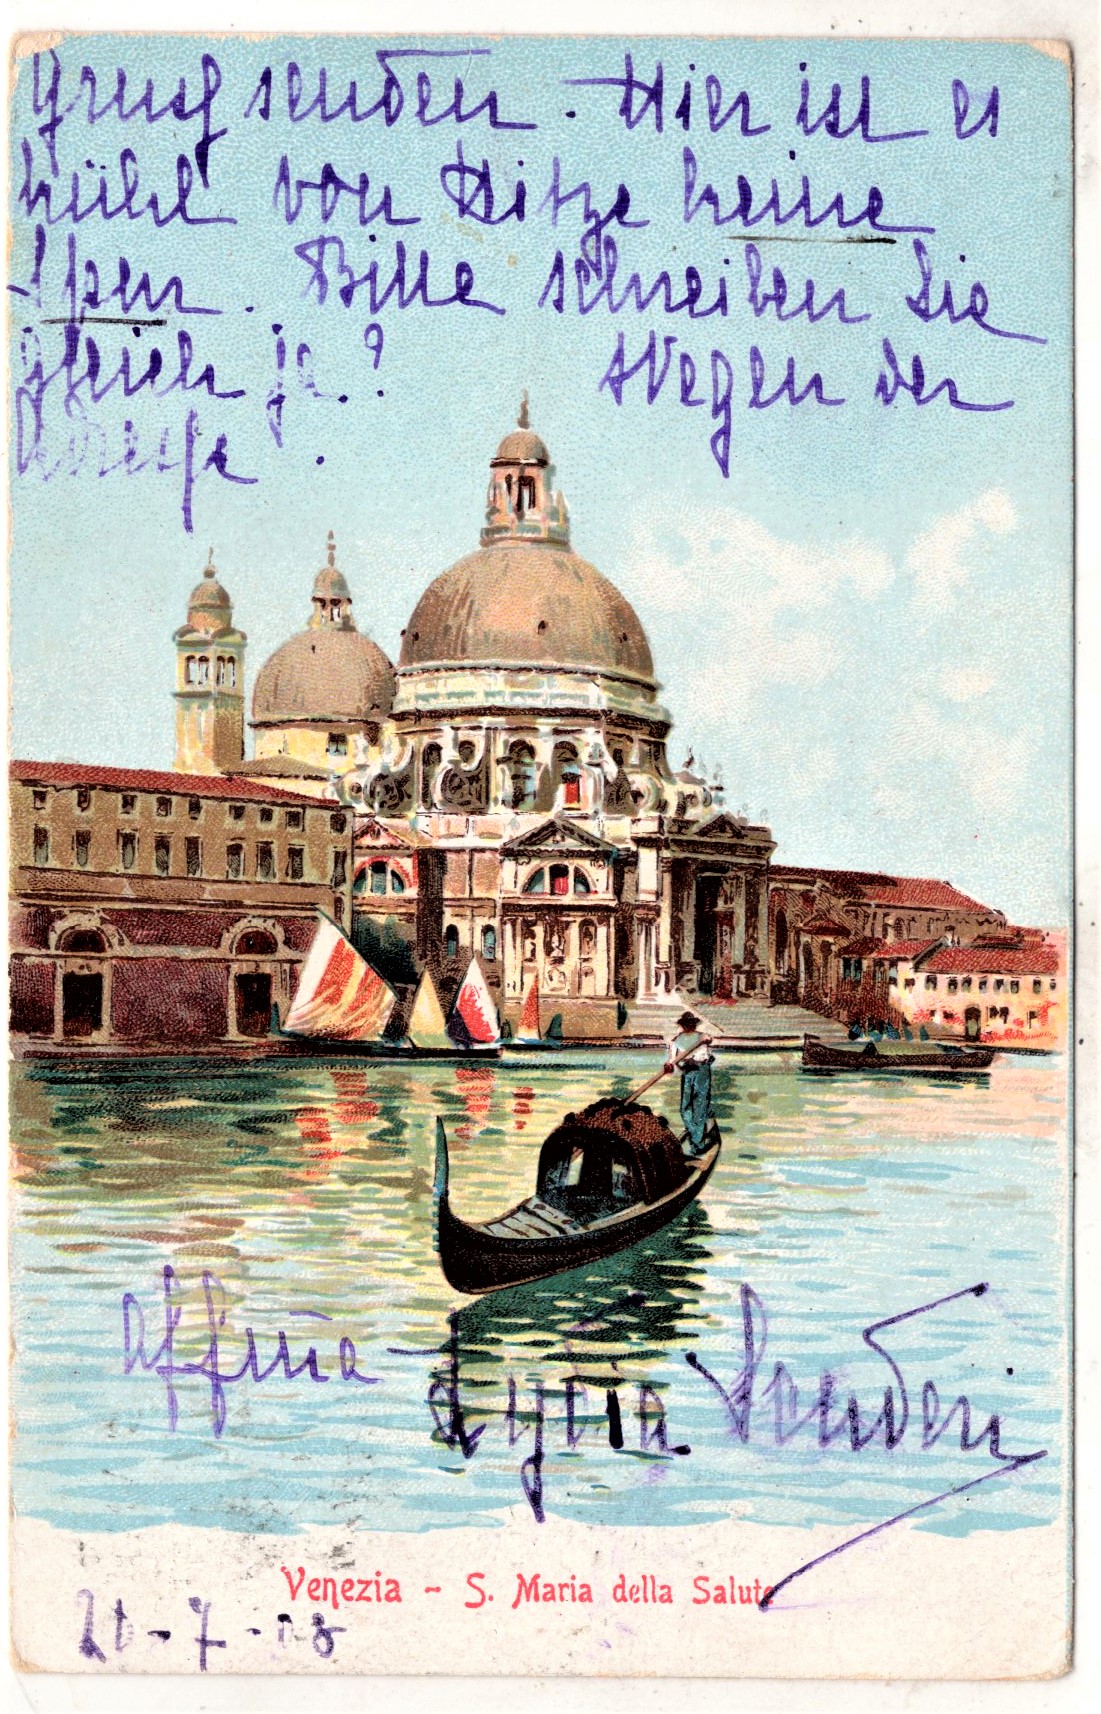 Gruß senden. Hier ist es
kühl von Hitze keine
Spur. Bitte schreiben Sie
gleich ja? Wegen der
Adresse.
affma Lydia
Venezia - S. Maria della Salute
-7-08